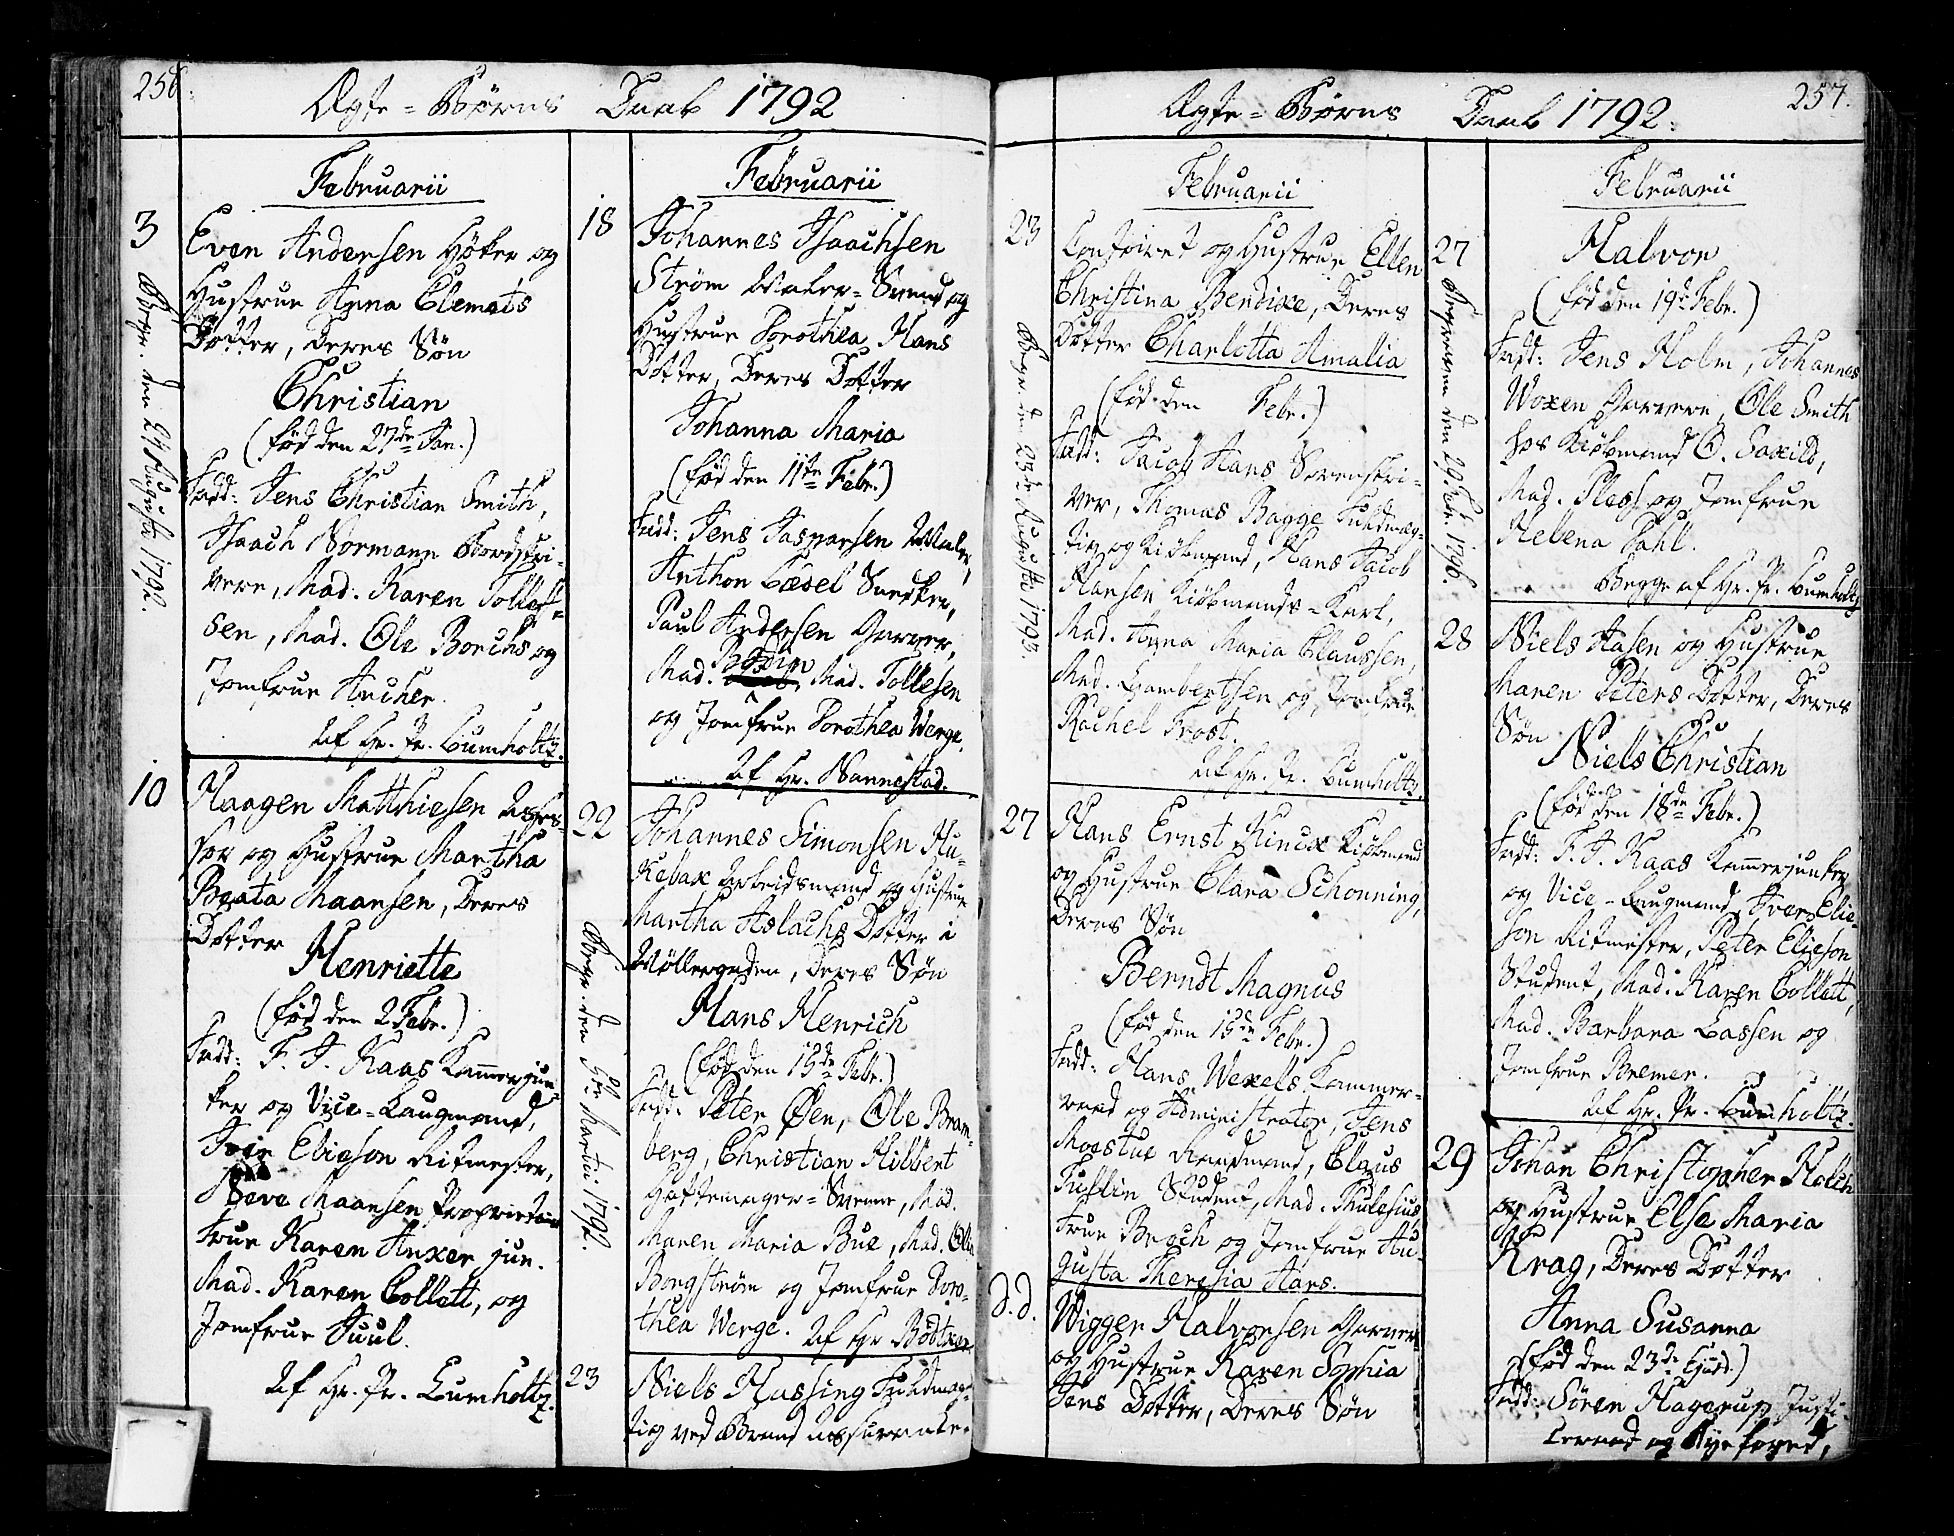 256.
Ægte=Børns Daab 1792
Februarii
3
Even Andersen Höker og
Hustrue Anna Clemets
Dotter, Deres Sön
Christian
(fød den 27de Jan.)
Fadd: Jens Christian Smith,
Isaach Normann Bordskri-
vere, Mad. Karen Tollef-
sen, Mad. Ole Borchs og
Jomfrue Ancher.
Af Hr. Pr. Lumholtz.
Begr. den 24 Augusti 1792.
10
Haagen Matthiesen Asses-
sor og Hustrue Martha
Beata Maansen, Deres
Dotter
Henriette
(fød den 2 Febr.)
Fadd: F. J. Kaas Kammerjun-
ker og Vice=Laugmand,
Iver Elieson Ritmester,
Maansen Proprietair
Frue Karen Anker jun.
Mad. Karen Collett, og
Jomfrue Juul.
Af Hr. Pr. Lumholtz.
Februarii
18
Johannes Isaachsen
Ström Maler=Svend og
Hustrue Dorothea Hans
Dotter, Deres Dotter
Johanna Maria
(fød den 11te Febr.)
Fadd: Jens Jaspersen Maler,
Anthon Cæsel Snedker,
Paul Andersen Garver,
Mad. Bodin Mad. Tollesen
og Jomfrue Dorothea Werge.
Af Hr. Nannestad.
22
Johannes Simonsen Hu-
kebax Arbeidsmand og Hustrue
Martha Aslachs Dotter i
Möllergaden, Deres Sön
Hans Henrich
(fød den 15de Febr.)
Fadd: Peter Øen, Ole Bram-
berg, Christian Hilbert
Hattemager=Svenne, Mad.
Maren Maria Bue, Mad.
Borgström og Jomfrue Doro-
thea Werge. Af Hr Bödtker
Begr. den Martii 1792.
23
Niels Hussing Fuldmæg-
tig ved Brand Assurance-
257.
Ægte=Børns Daab 1792.
Februarii
23
Contoiret og Hustrue Ellen
Christina Bendixe, Deres
Dotter Charlotta Amalia
(fød den Febr.)
Fadd: Jacob Hans Sorenskri-
ver, Thomas Bagge Fuldmæg-
tig og Kiöbmand, Hans Jacob
Hansen Kiöbmands=Karl,
Mad. Anna Maria Claussen,
Mad. Lambertsen og Jomfrue
Rachel Frost.
Af Hr. Pr. Lumholtz.
Begr. den 23de Augusti 1793.
27
Hans Ernst Kinck Kiöbmand
og Hustrue Clara Schonning,
Deres Sön
Berndt Magnus
(fød den 15de Febr.)
Fadd: Hans Wexels Kammer-
raad og Administrator, Jens
Moestue Raadmand, Claus
Student, Mad. Thulesius
Frue Broch og Jomfrue Au-
gusta Theresia Aars.
d.d.
Wigger Halvorsen Garver
og Hustrue Karen Sophia
Jens Dotter, Deres Sön
Februarii
27
Halvor
(fød den 19de Febr.)
Fadd: Jens Holm, Johannes
Woxen Garvere, Ole Smith
hos Kiöbmand O. Saxild,
Mad. Pless og Jomfrue
Helena Dahl.
Begge af Hr. Pr. Lumholtz
Begraven den 29 Febr. 1796.
28
Niels Aasen og Hustrue
Maren Peters Dotter, Deres
Sön
Niels Christian
(fød den 18de Febr.)
Fadd: F. J. Kaas Kammerjunker
og Vice-Laugmand, Iver Elie-
son Ritmester, Peter Elieson
Student, Mad. Karen Collett,
Mad. Barbara Lassen og
Jomfrue Bremer.
Af Hr. Pr. Lumholtz.
29
Johan Christopher Holch
og Hustrue Else Maria
Krag, Deres Dotter
Anna Susanna
(fød den 23de Ejusd.)
Fadd: Sören Hagerup Justi-
tzeraad og Byefoged,